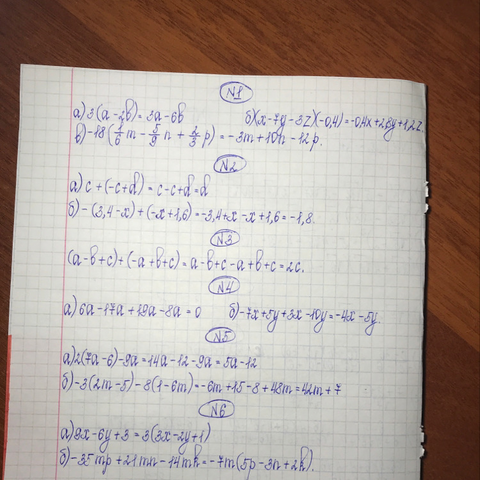 N1
а) 3(a-2b)=3a-6b б)(x-7y-3z)(-0,4)=-0,4x+2,8y+1,2z
в)-18(1/6 m - 5/9 n + 2/3 p)=-3m+10n-12p.
N2
а) c+(-c+d)=c-c+d=d
б)-(3,4-x)+(-x+1,6)=-3,4+x-x+1,6=-1,8.
N3
(a-b+c)+(-a+b+c)=a-b+c-a+b+c=2c.
N4
а) 6a-17a+19a-8a=0 б)-7x+5y+3x-10y=-4x-5y.
N5
а)2(7a-6)-9a=14a-12-9a=5a-12
б)-3(2m-5)-8(1-6m)=-6m+15-8+48m=42m+7
N6
а)9x-6y+3=3(3x-2y+1)
б)-35mp+21mn-14mk=-7m(5p-3n+2k).